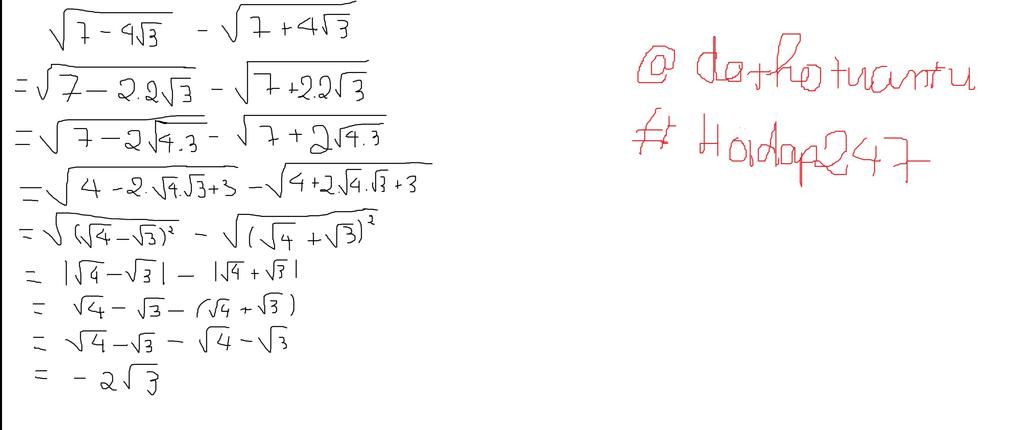 √(7 - 4√3) - √(7 + 4√3)
= √(7 - 2.2√3) - √(7 + 2.2√3)
= √(7 - 2√(4.3)) - √(7 + 2√(4.3))
= √(4 - 2.√4.√3 + 3) - √(4 + 2.√4.√3 + 3)
= √((√4 - √3)²) - √((√4 + √3)²)
= |√4 - √3| - |√4 + √3|
= √4 - √3 - (√4 + √3)
= √4 - √3 - √4 - √3
= - 2√3
@ dothotuantu
# Hoidap247